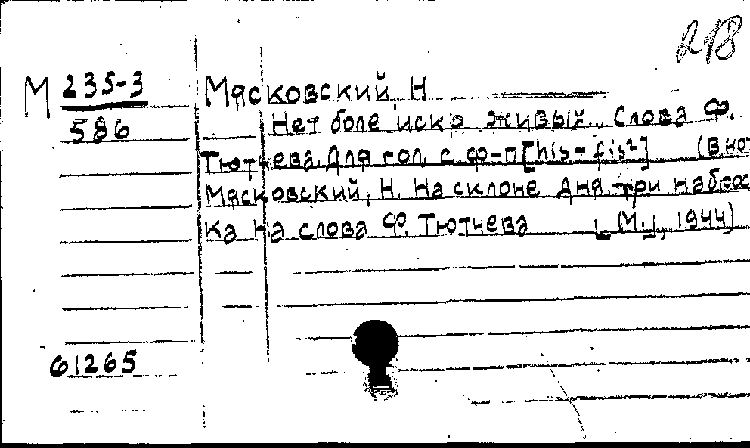 М 235-3 Мясковский, Н
586 Нет боле искр живых.. Слова Ф.
Тютчева. Для гол. с ф-п [his - fis²] (В кн
Мясковский, Н. На склоне дня. три наброс
ка на слова Ф. Тютчева [М.], 1944)
61265